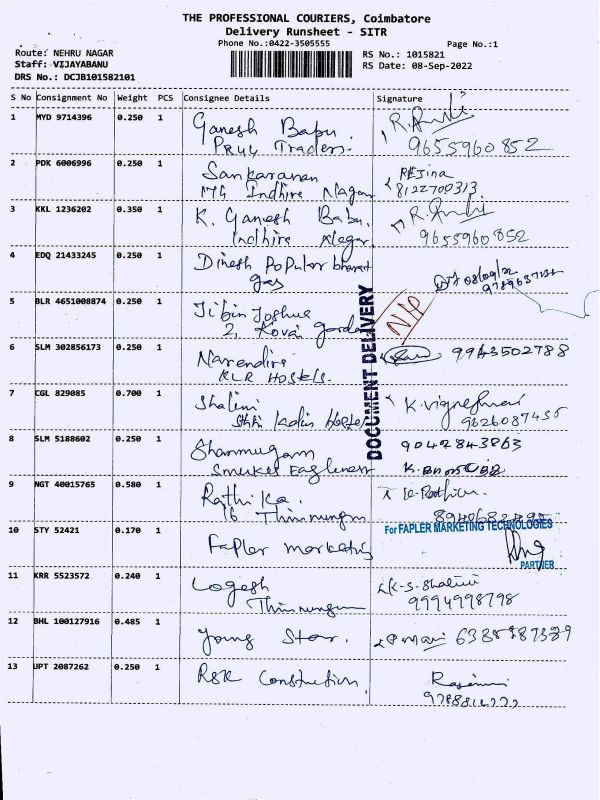 THE PROFESSIONAL COURIERS, Coimbatore
Delivery Runsheet - SITR
Phone No.:0422-3505555
Page No.:1
Route: NEHRU NAGAR
RS No.: 1015821
Staff: VIJAYABANU
RS Date: 08-Sep-2022
DRS No.: DCJB101582101
S No Consignment No Weight PCS Consignee Details Signature
1 MYD 9714396 0.250 1 Ganesh Babu.
Traders. 9655960852
2 PDK 6006996 0.250 1 Sankaranan REJina
Indhira Nagar 8122700313
3 KKL 1236202 0.350 1 K. Ganesh Babu.
Indhira Nagar 9655960852
4 EDQ 21433245 0.250 1 Dinesh Popular bharat
gas
5 BLR 4651008874 0.250 1 Jibin Joshua
2, Kovai garden
N/P
DOCUMENT DELIVERY
6 SLM 302856173 0.250 1 Narendira 9943502788
RLR HOSTELS.
7 CGL 829085 0.700 1 Shalini K. Vigneshwari
8 SLM 5188602 0.250 1 Shanmugam 9042843863
9 NGT 40015765 0.580 1 Rathika.
16
10 STY 52421 0.170 1 Fapler marketing
For FAPLER MARKETING TECHNOLOGIES
PARTNER
11 KRR 5523572 0.240 1 Logesh K-S-Shalini
9994998798
12 BHL 100127916 0.485 1 Young Star.
13 JPT 2087262 0.250 1 R&R Constrution